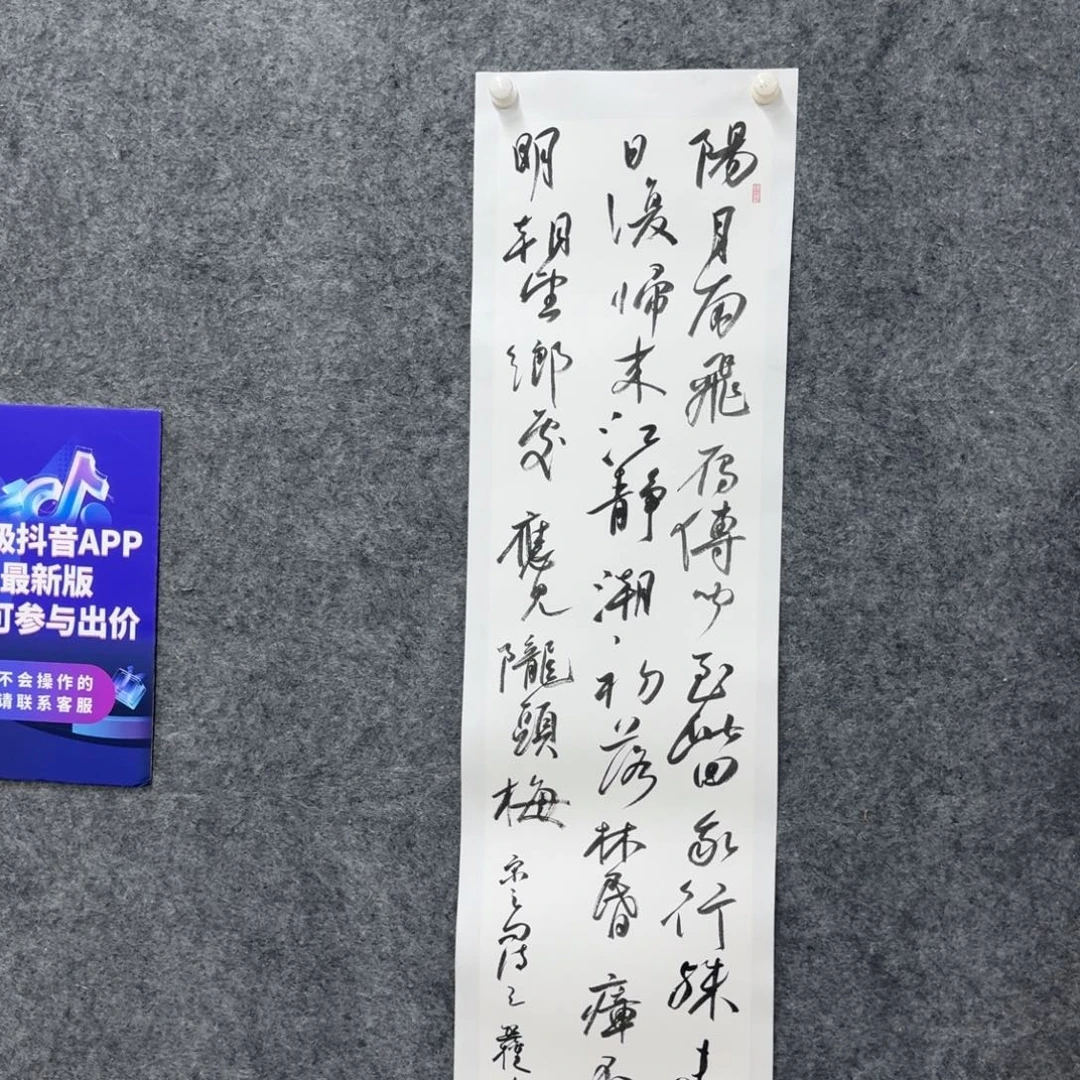 陽月南飛雁傳聞至此回我行殊未
日復歸來江靜潮初落林昏瘴不
明朝望鄉處應見隴頭梅 宋之問詩
级抖音APP
最新版
可参与出价
不会操作的
请联系客服